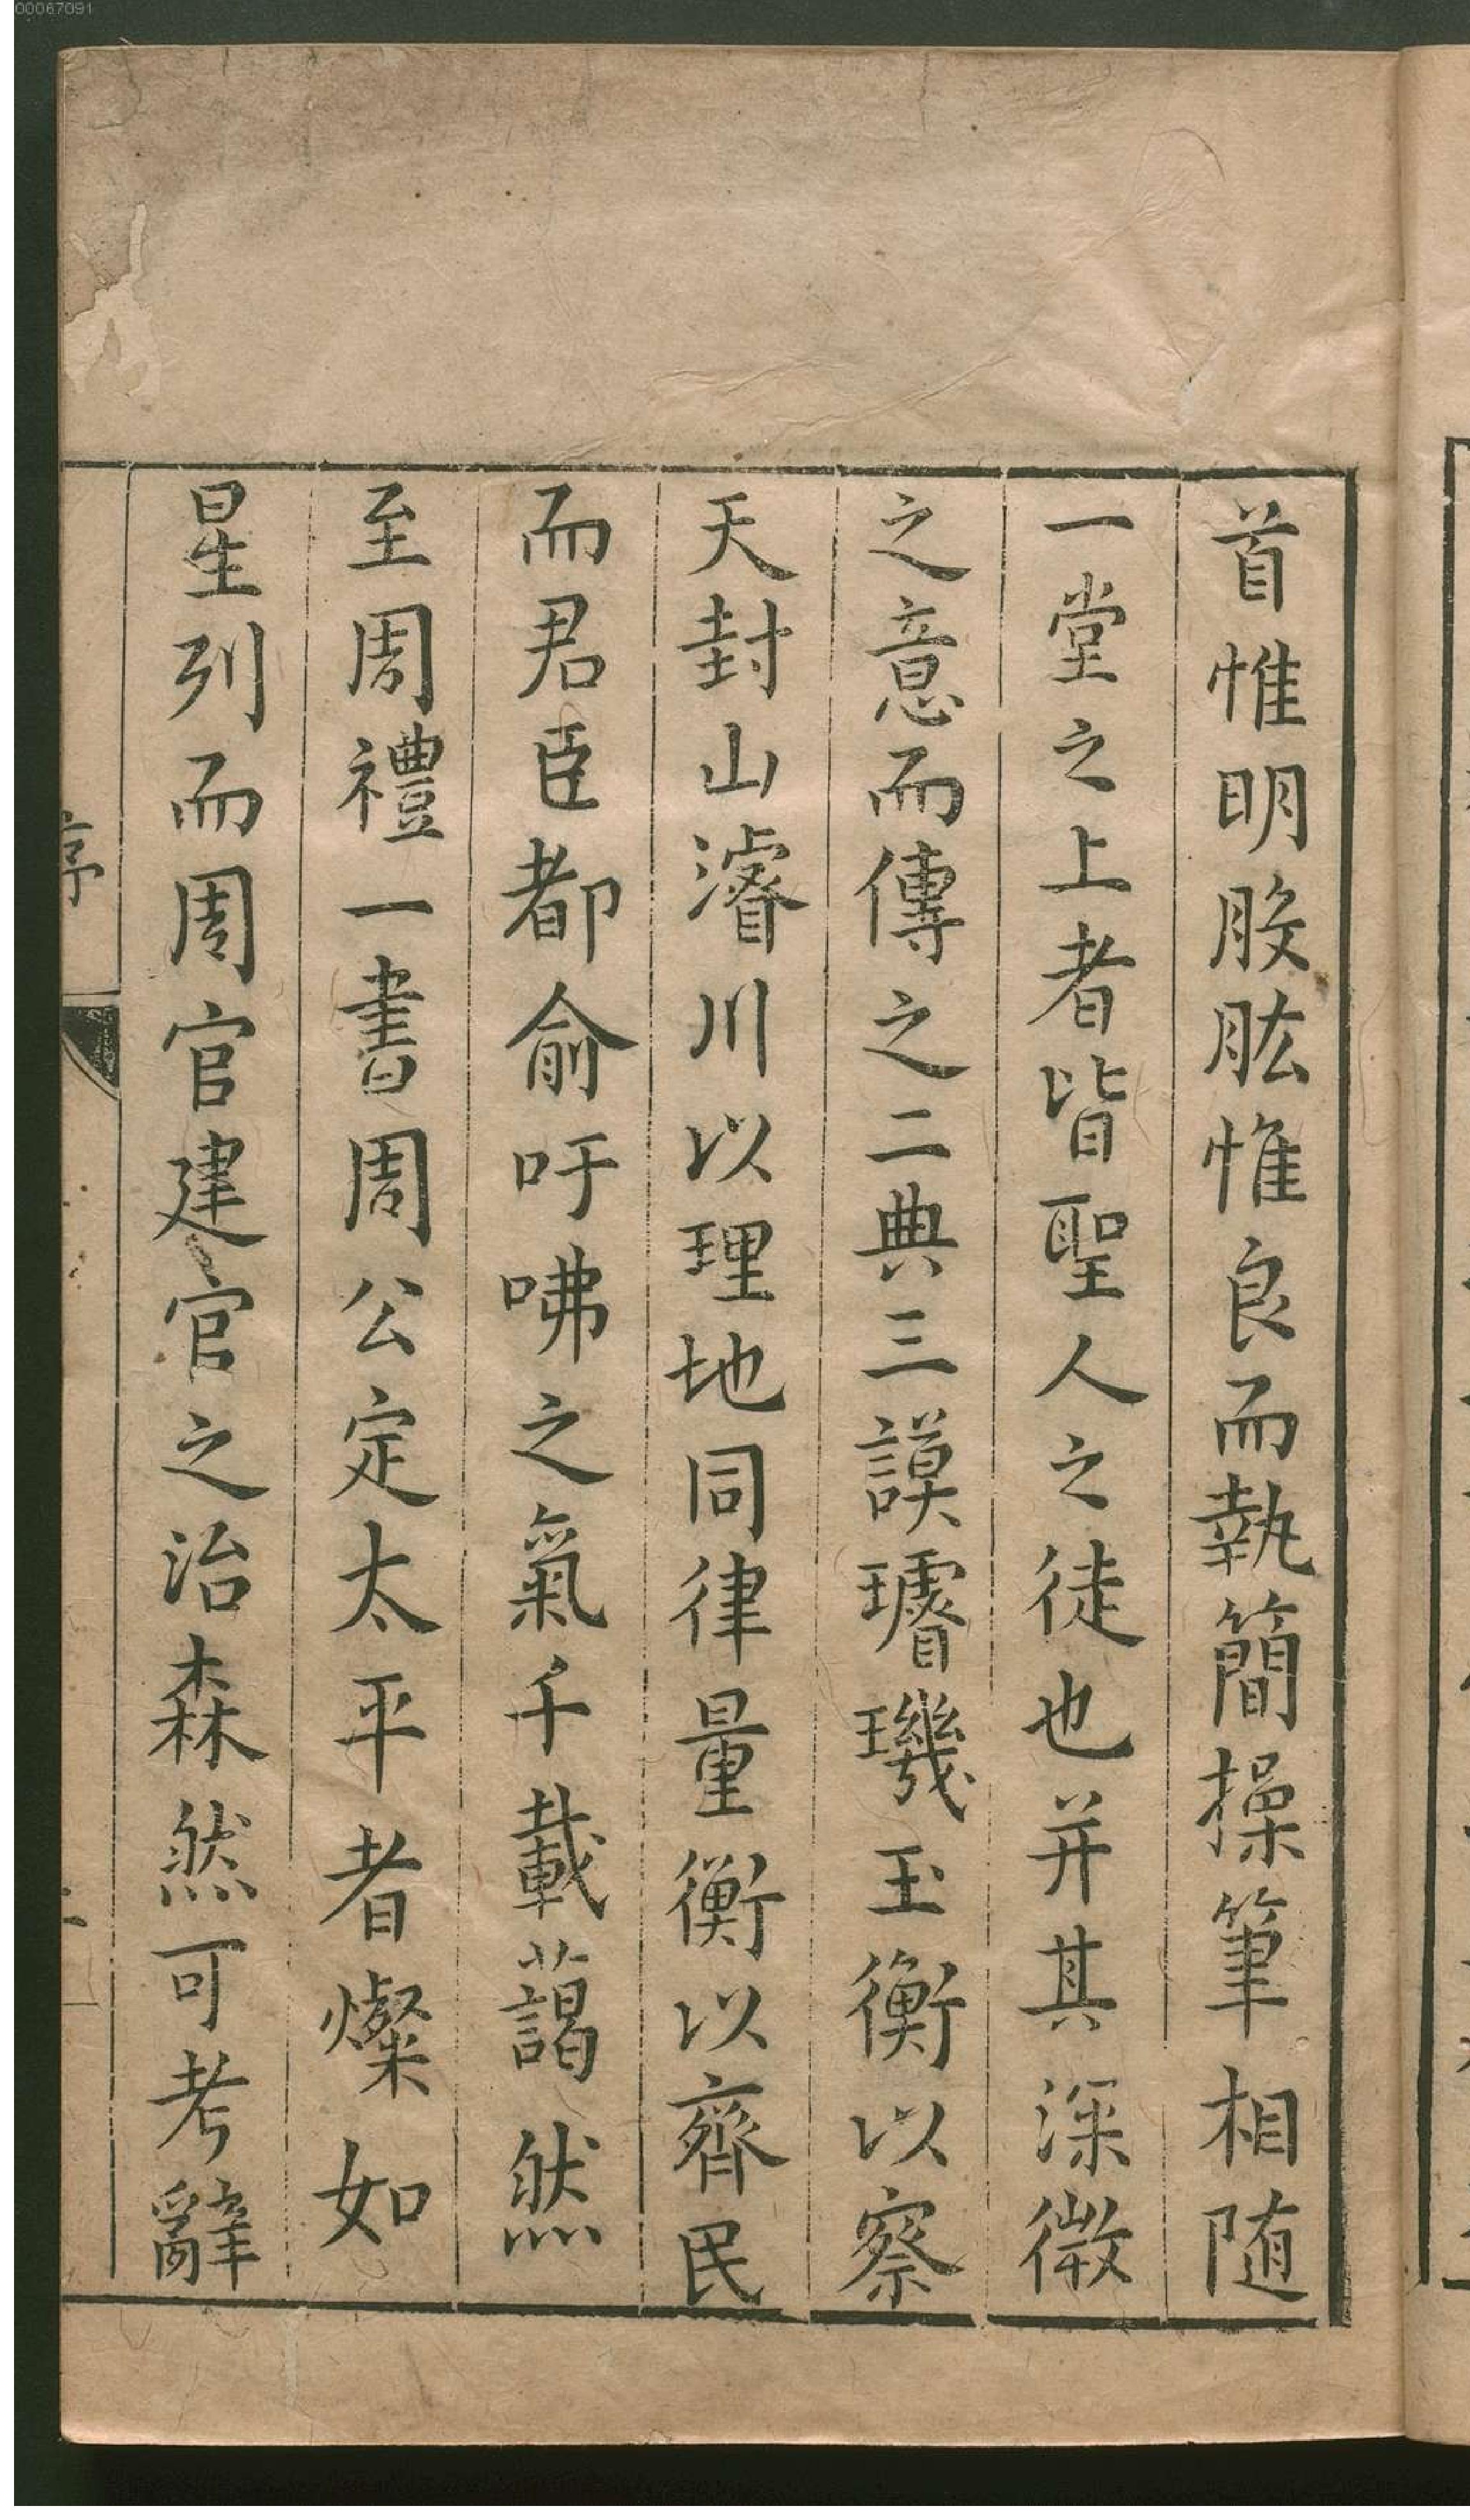 00067091
首惟明股肱惟良而執簡操筆相随
一堂之上者皆聖人之徒也并其深微
之意而傳之二典三謨璿璣玉衡以察
天封山濬川以理地同律量衡以齊民
而君臣都俞吁咈之氣千載藹然
至周禮一書周公定太平者燦如
星列而周官建官之治森然可考辭
序